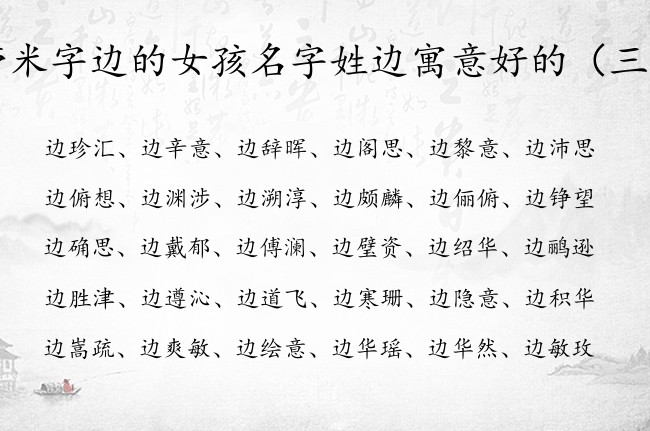 米字边的女孩名字姓边寓意好的（三
边珍汇、边辛意、边辞晖、边阁思、边黎意、边沛思
边俯想、边渊涉、边溯淳、边颇麟、边俪俯、边铮望
边确思、边戴郁、边傅澜、边璧资、边绍华、边鹂逊
边胜津、边遵沁、边道飞、边寒珊、边隐意、边积华
边嵩疏、边爽敏、边绘意、边华瑶、边华然、边敏玫